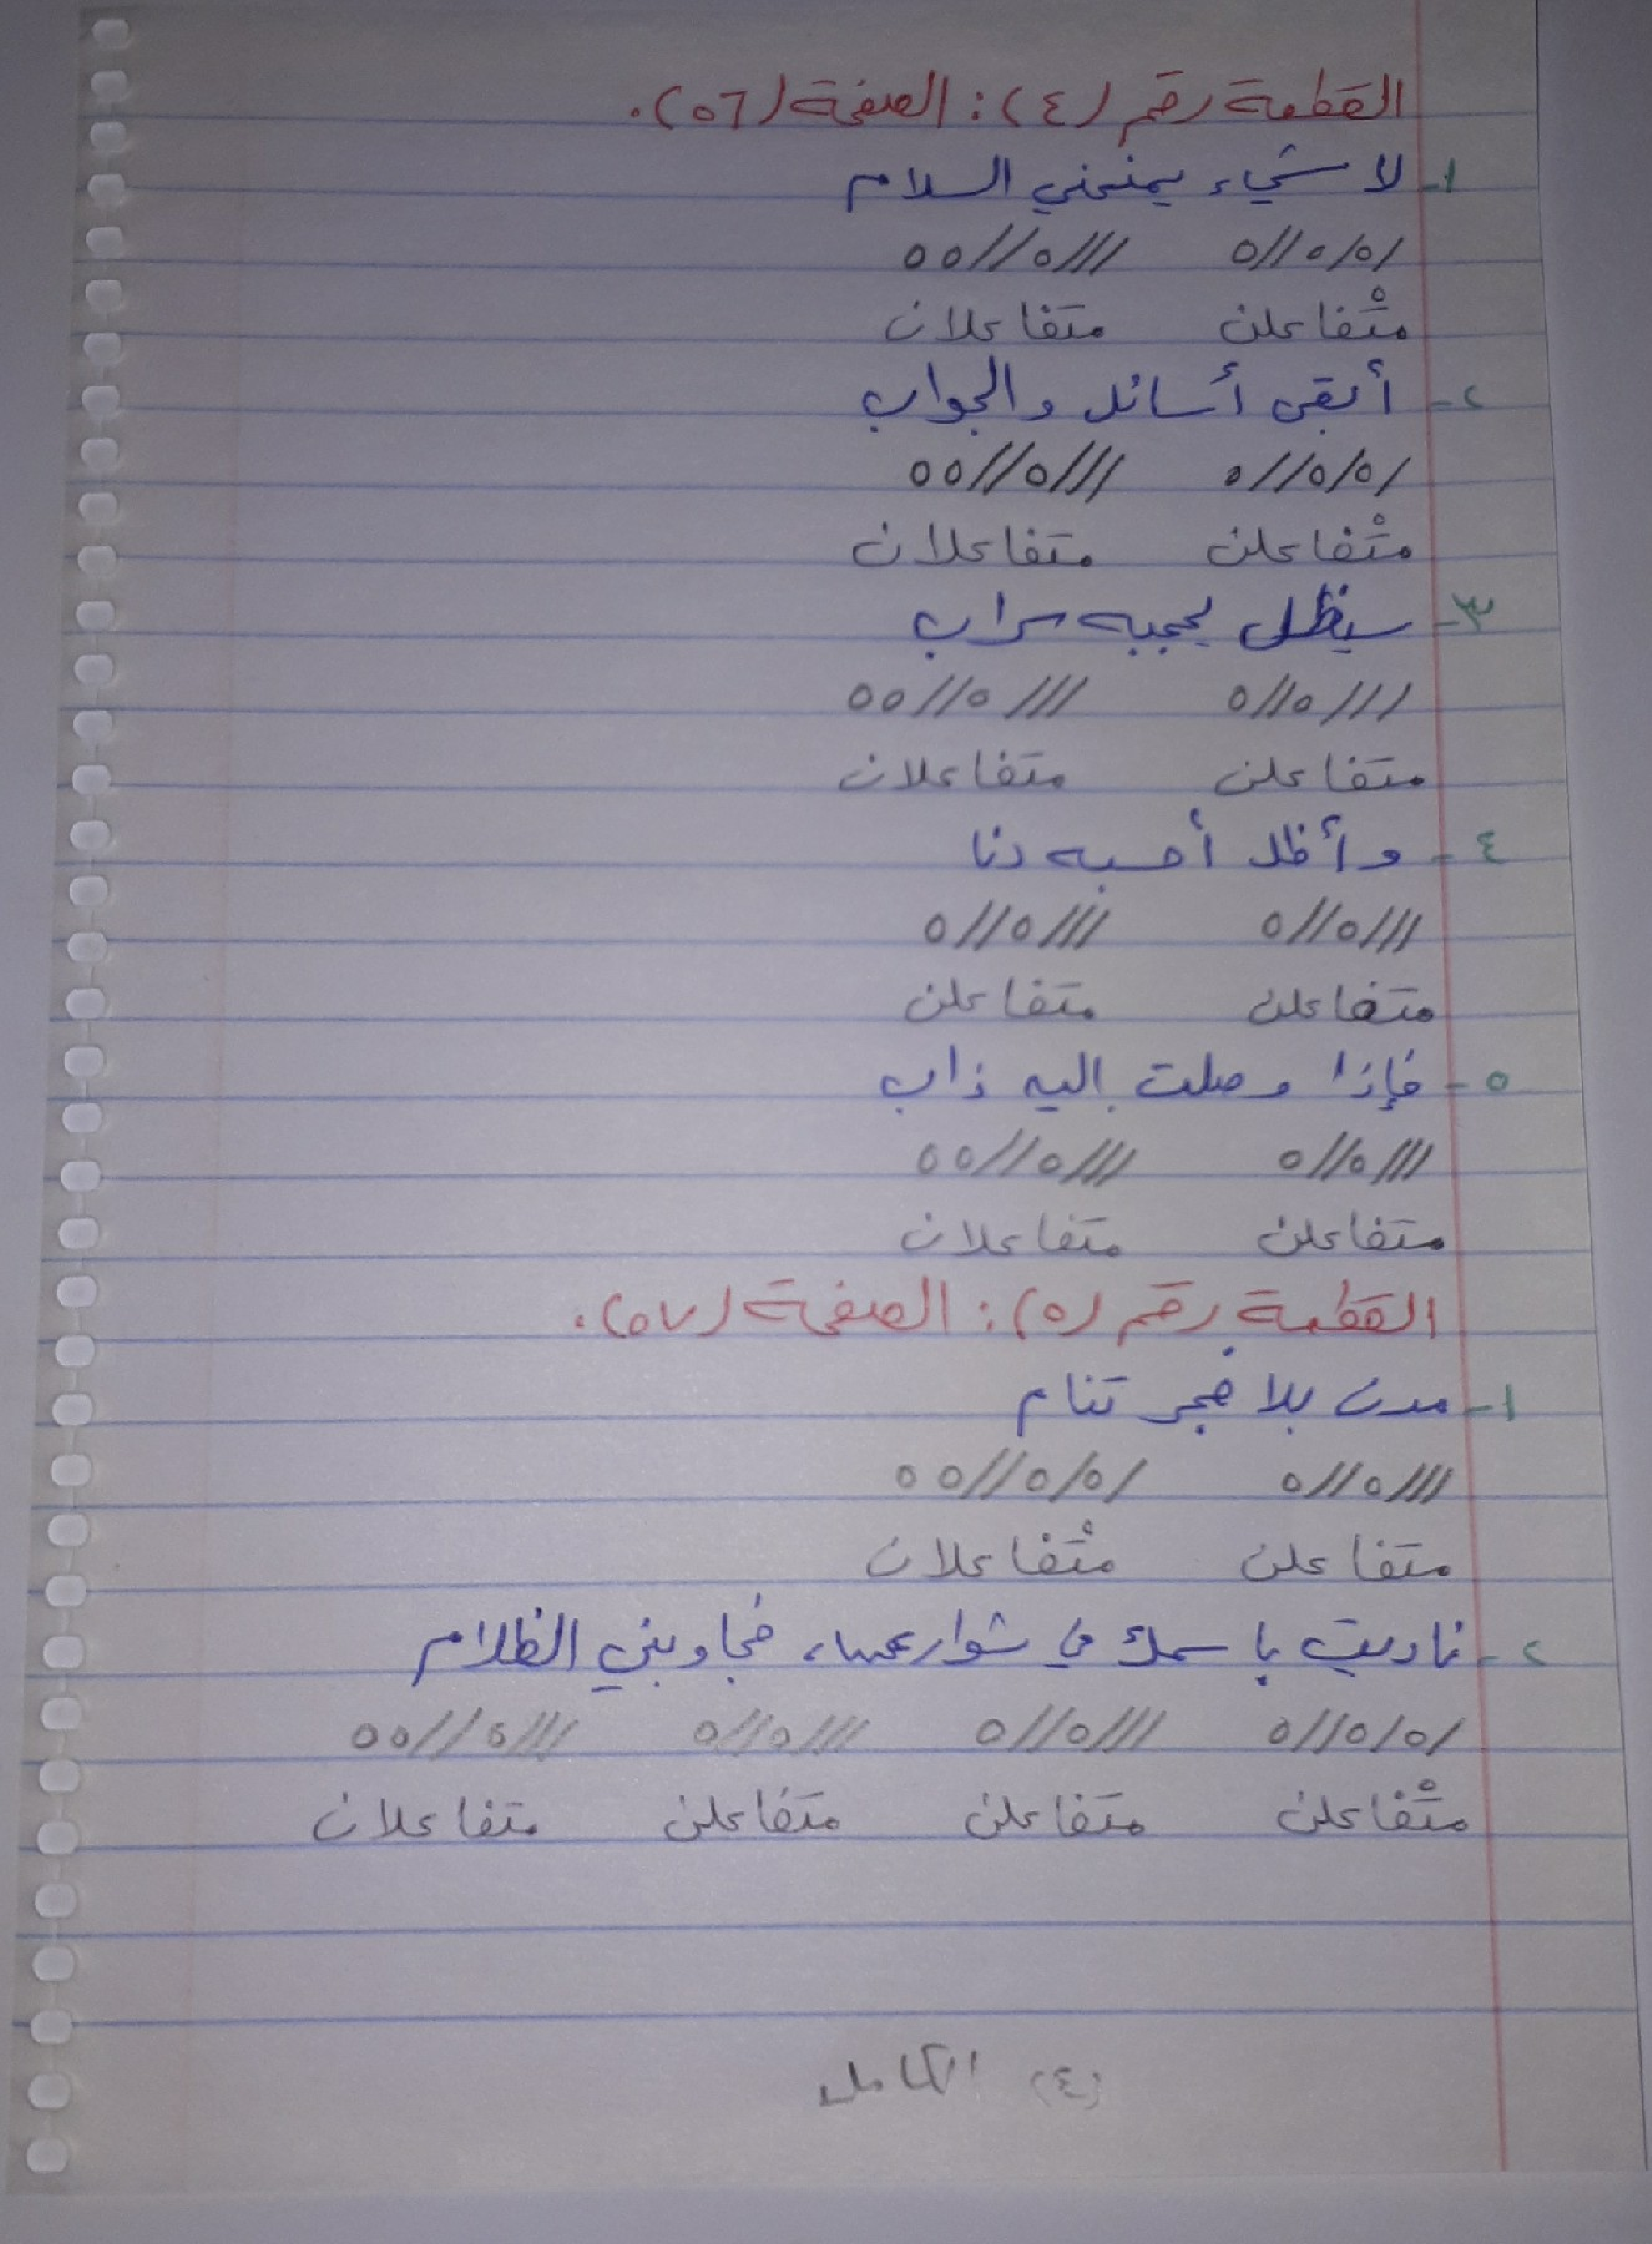 القطعة رقم (٤): الصفحة (٥٦).
١- لا شيء يمنحني السلام
/٥/٥//٥ ///٥//٥٥
متْفاعلن متفاعلان
٢- أبقى أسائل والجواب
/٥/٥//٥ ///٥//٥٥
متْفاعلن متفاعلان
٣- سيظل يحجبه سراب
///٥//٥ ///٥//٥٥
متفاعلن متفاعلان
٤- وأظل أحسبه دنا
///٥//٥ ///٥//٥
متفاعلن متفاعلن
٥- فإذا وصلت إليه ذاب
///٥//٥ ///٥//٥٥
متفاعلن متفاعلان
القطعة رقم (٥): الصفحة (٥٧).
١- مدن بلا فجر تنام
///٥//٥ /٥/٥//٥٥
متفاعلن متْفاعلان
٢- ناديت باسمك في شوارعها، فجاوبني الظلام
/٥/٥//٥ ///٥//٥ ///٥//٥ ///٥//٥٥
متْفاعلن متفاعلن متفاعلن متفاعلان
(٤) الكامل